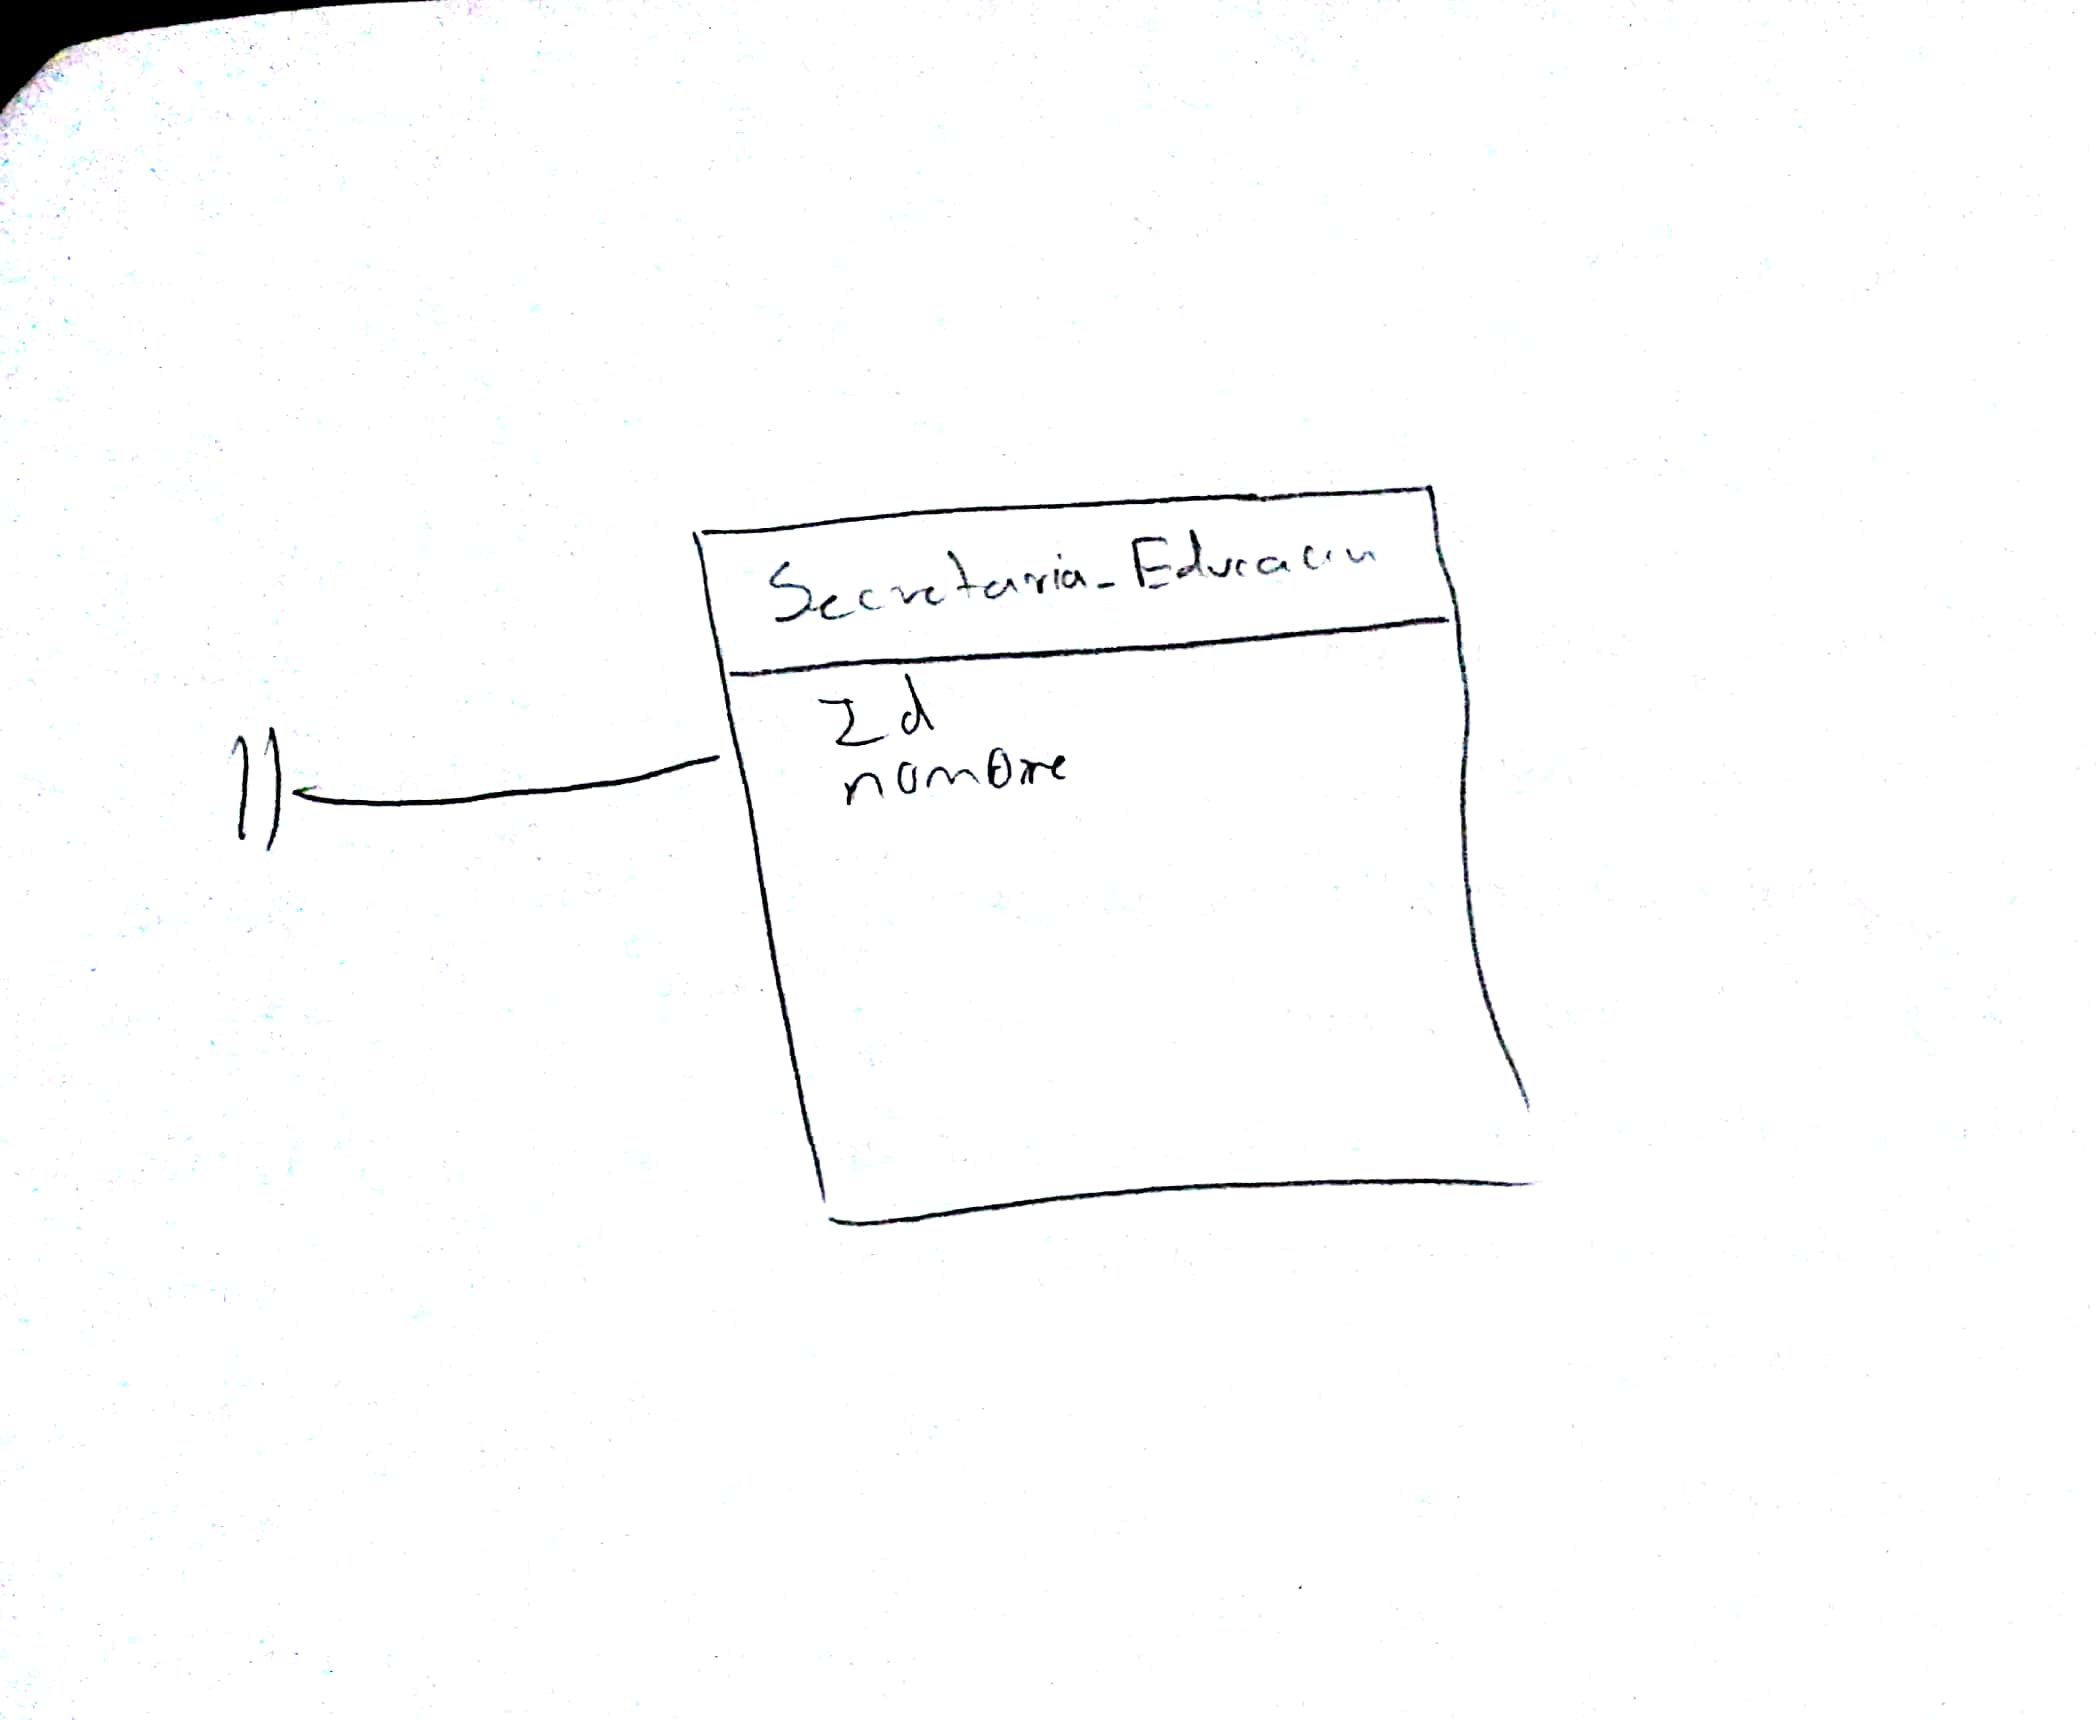 Secretaria_Educacin
Id
nombre
11